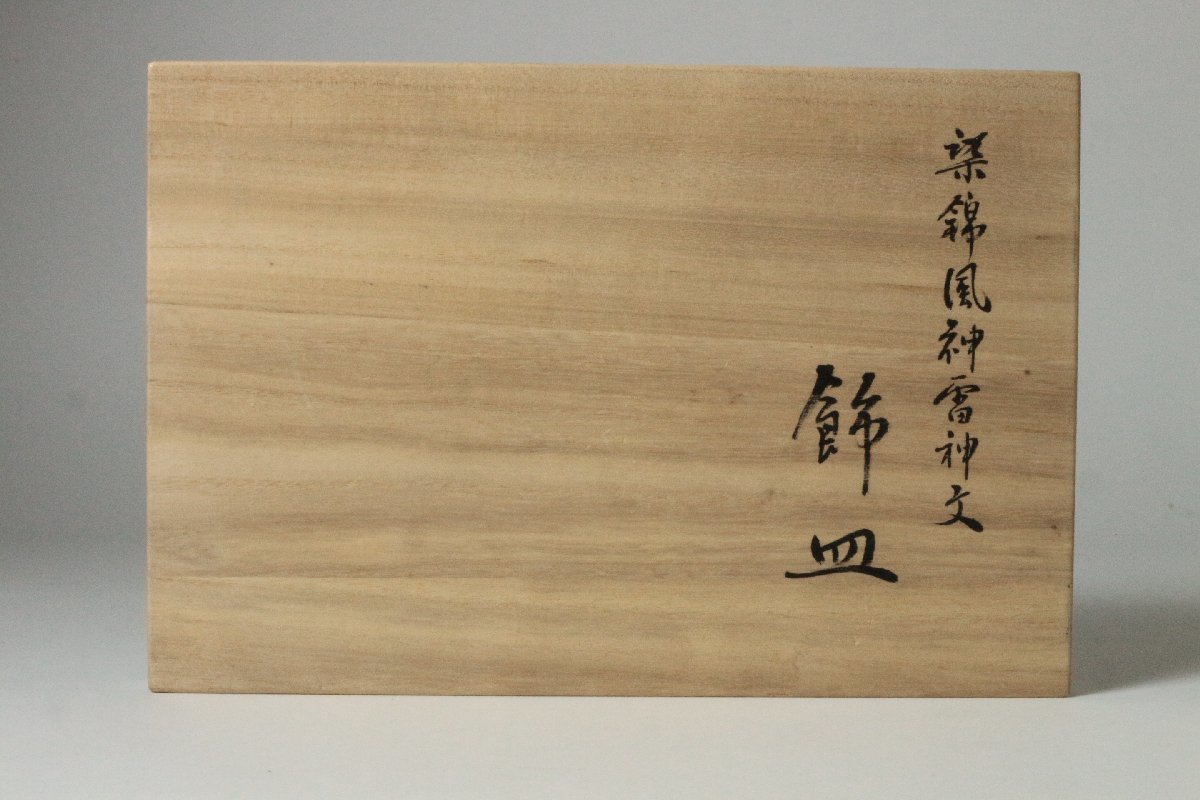 染錦風神雷神文
飾皿